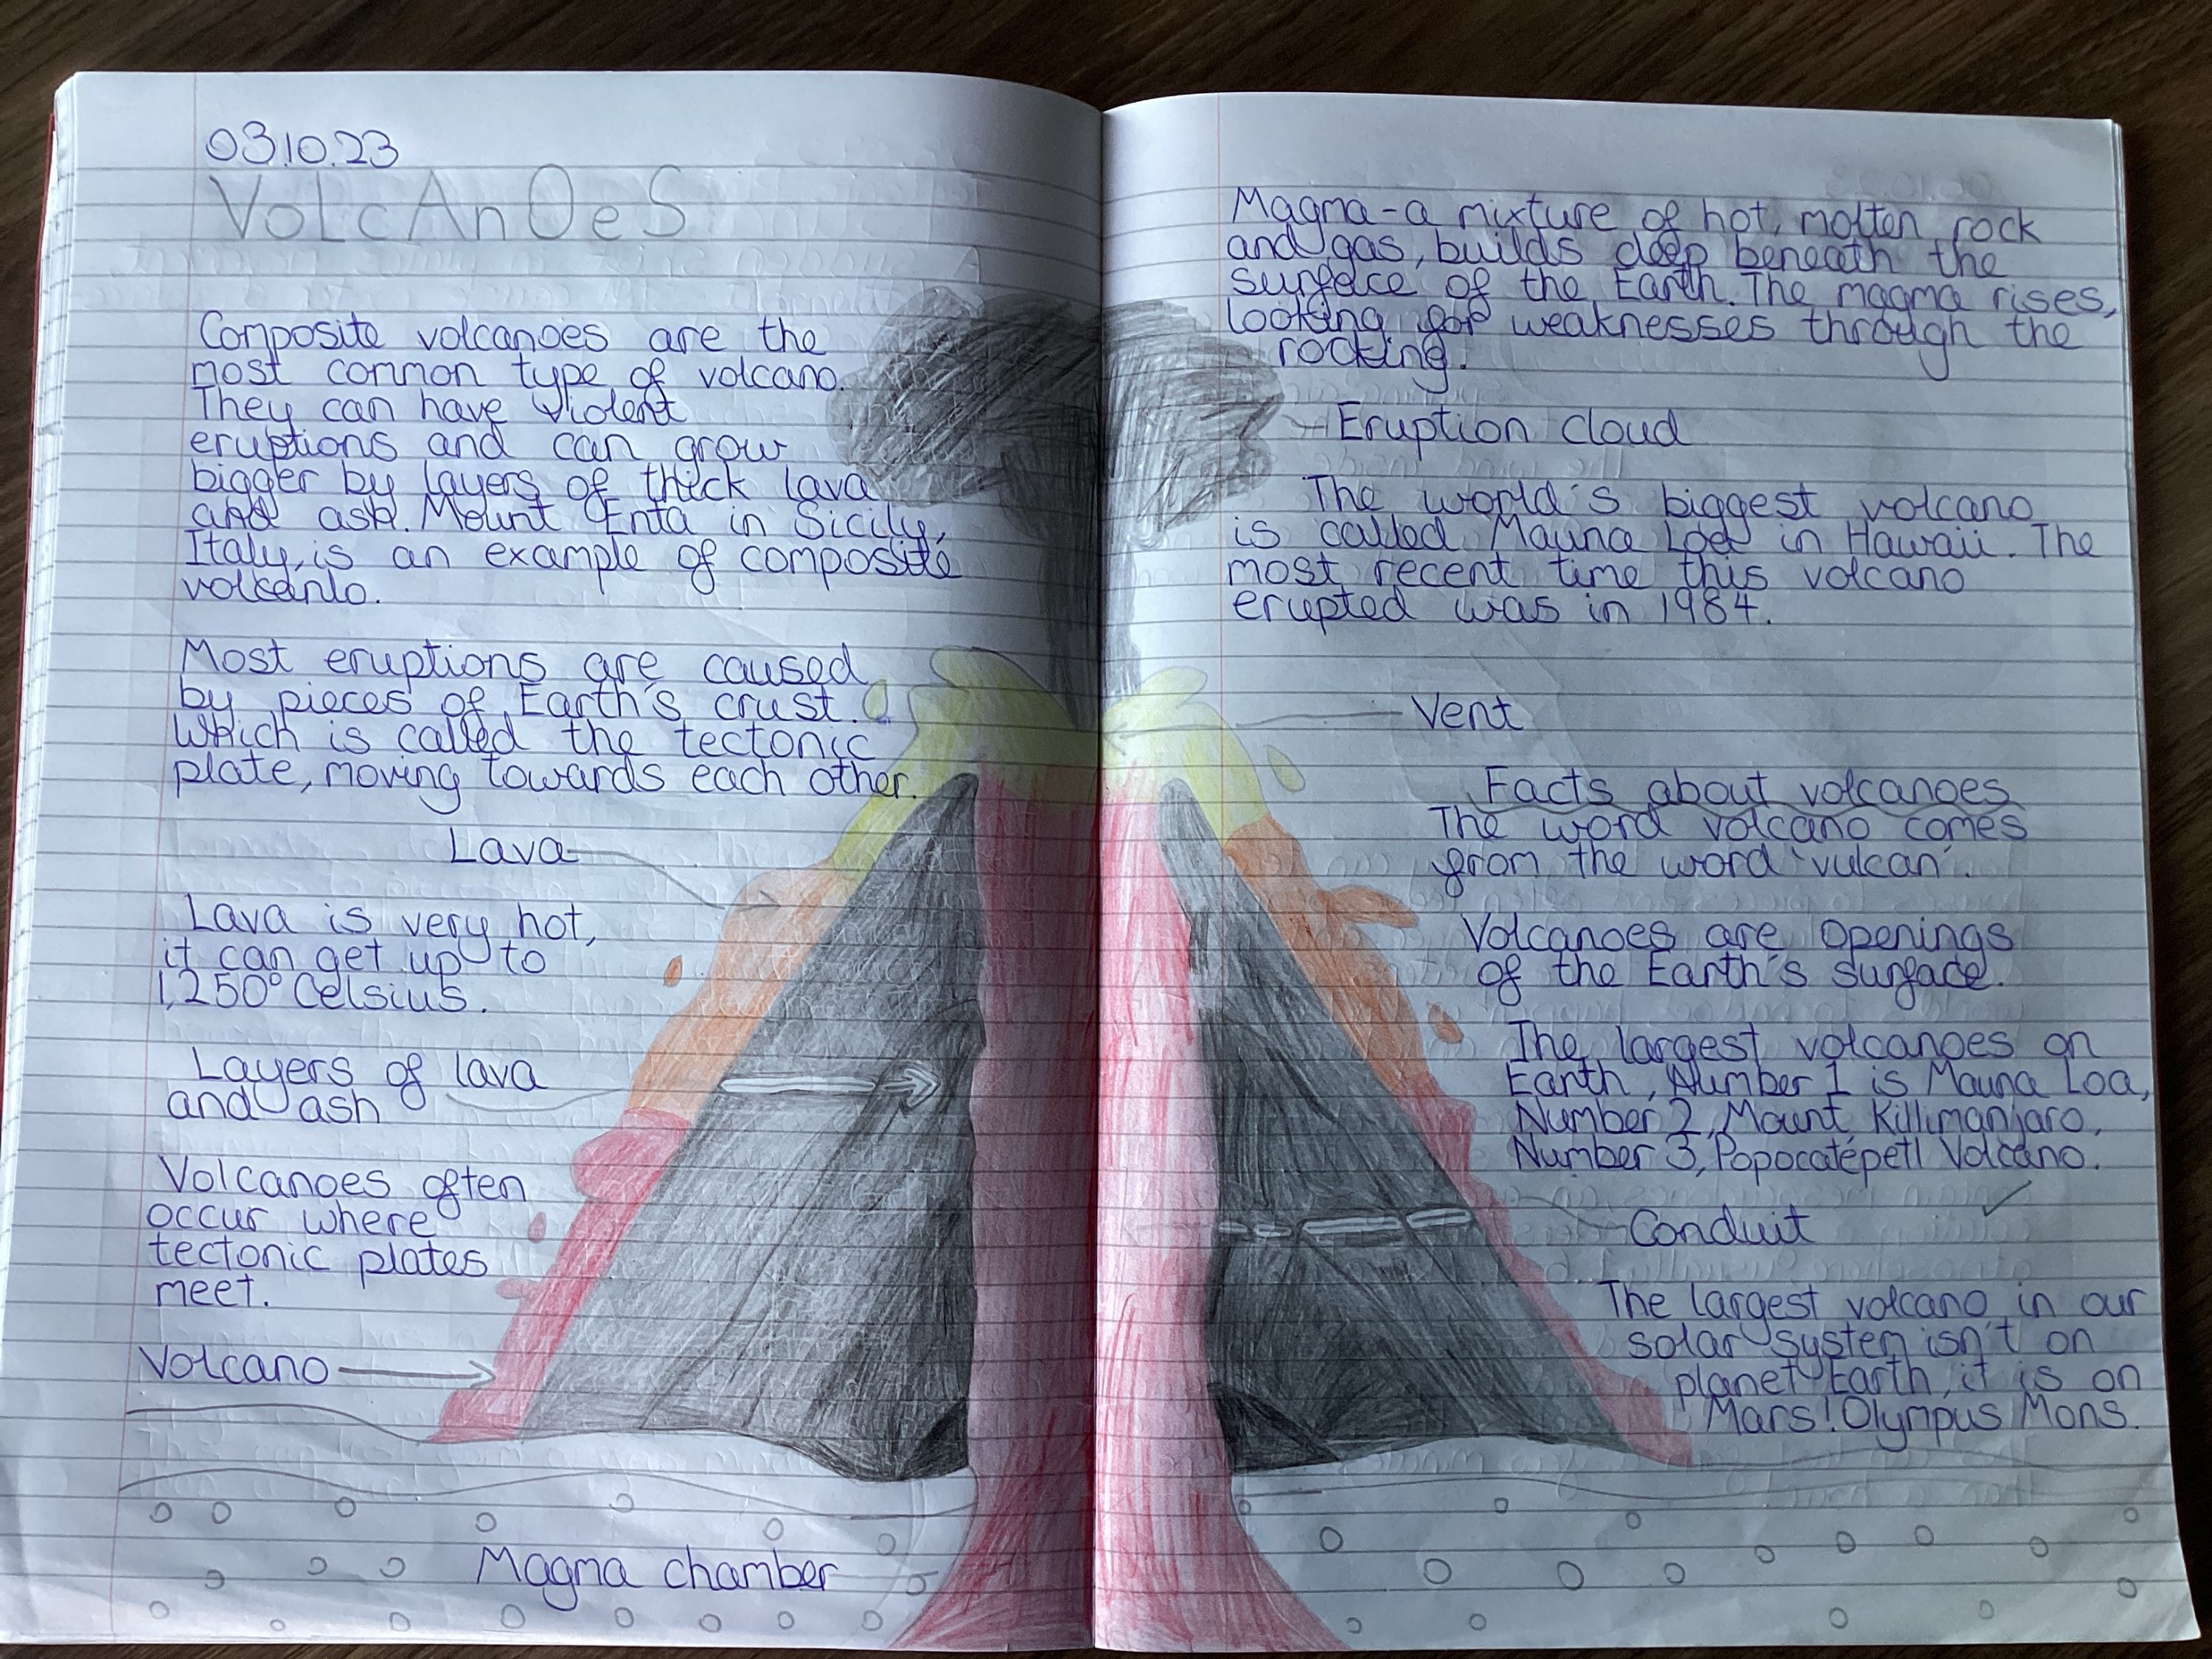 03.10.23
VoLcAnOeS
Composite volcanoes are the
most common type of volcano.
They can have violent
eruptions and can grow
bigger by layers of thick lava
and ash. Mount Enta in Sicily,
Italy, is an example of composite
volcanlo.
Most eruptions are caused
by pieces of Earth's crust.
Which is called the tectonic
plate, moving towards each other.
Lava
Lava is very hot,
it can get up to
1,250° Celsius.
Layers of lava
and ash
Volcanoes often
occur where
tectonic plates
meet.
Volcano
Magma chamber
Magma - a mixture of hot, molten rock
and gas, builds deep beneath the
surface of the Earth. The magma rises,
looking for weaknesses through the
rocking.
Eruption cloud
The world's biggest volcano
is called Mauna Loa in Hawaii. The
most recent time this volcano
erupted was in 1984.
Vent
Facts about volcanoes
The word volcano comes
from the word 'vulcan'.
Volcanoes are openings
of the Earth's surface.
The largest volcanoes on
Earth, Number 1 is Mauna Loa,
Number 2, Mount Killimanjaro,
Number 3, Popocatépetl Volcano.
Conduit
The largest volcano in our
solar system isn't on
planet Earth, it is on
Mars! Olympus Mons.